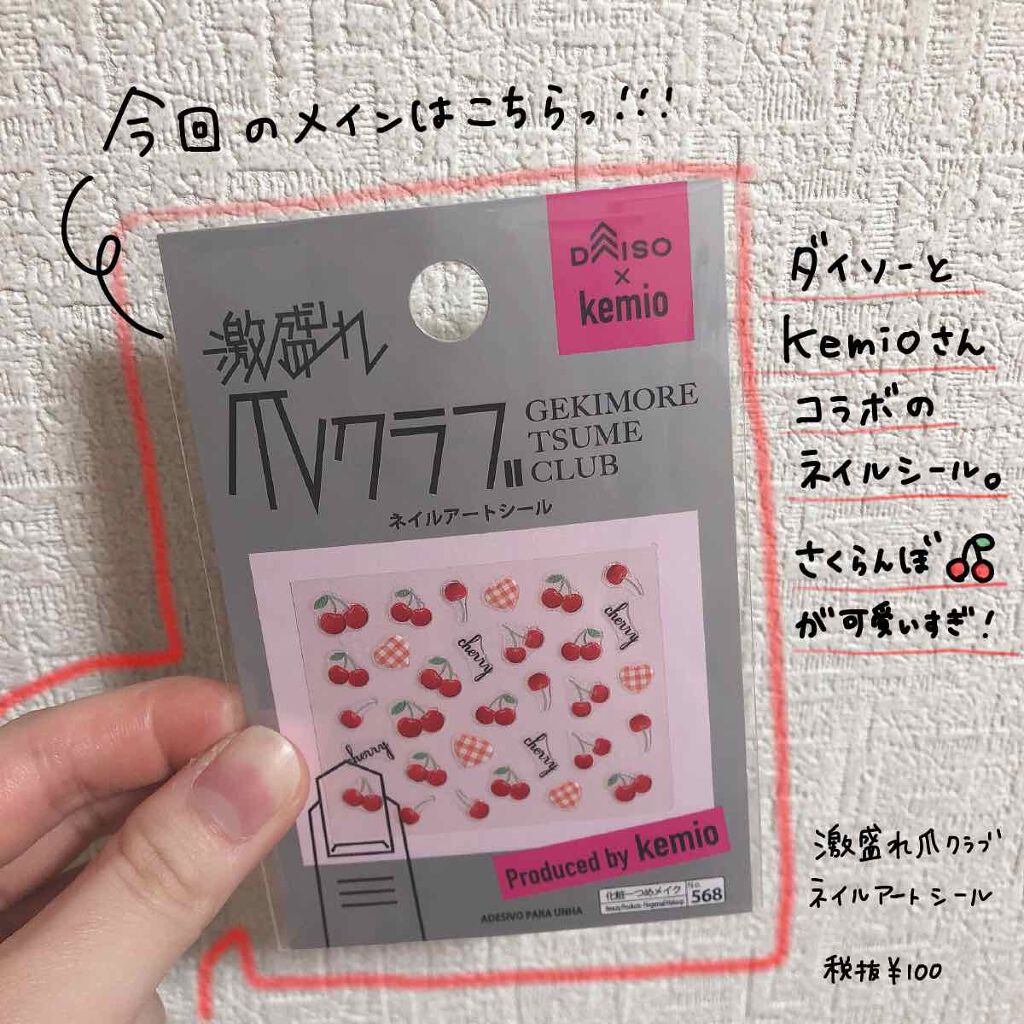 今回のメインはこちらっ!!!
DAISO
×
kemio
激盛れ
爪クラブ
GEKIMORE
TSUME
CLUB
ネイルアートシール
cherry
cherry
cherry
cherry
Produced by kemio
化粧-つめメイク
No.
568
ADESIVO PARA UNHA
ダイソーと
kemioさん
コラボの
ネイルシール。
さくらんぼ🍒
が可愛いすぎ!
激盛れ爪クラブ
ネイルアートシール
税抜¥100